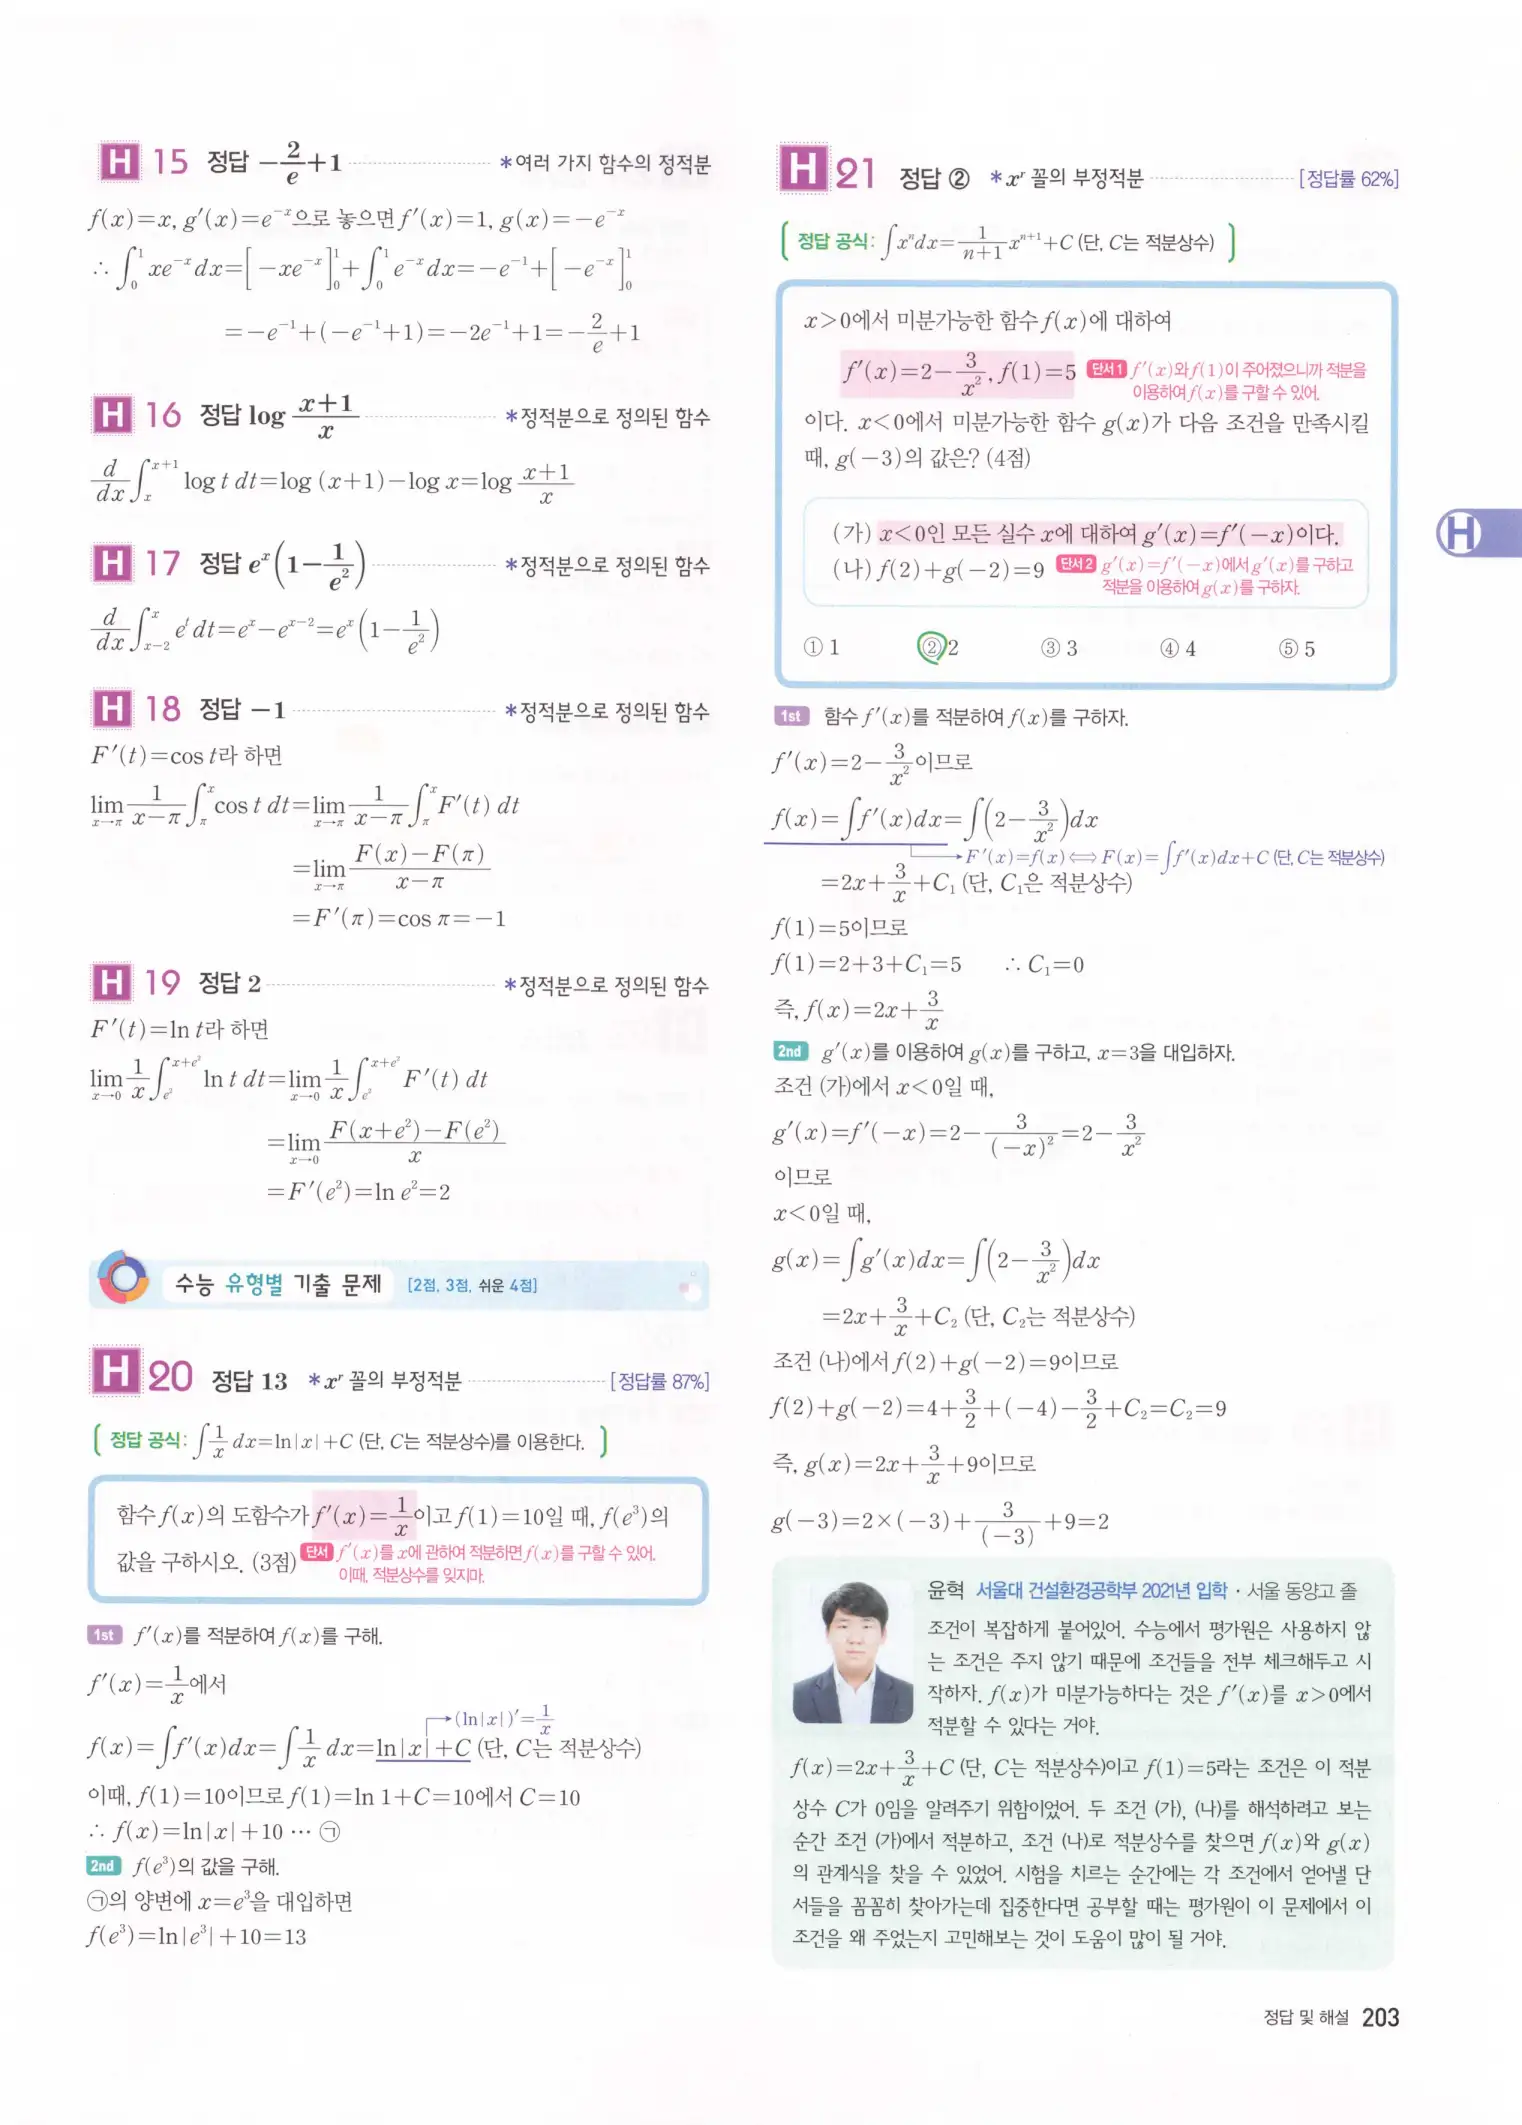 H 15 정답 −2/e+1 *여러 가지 함수의 정적분
f(x)=x, g′(x)=e⁻ˣ으로 놓으면 f′(x)=1, g(x)=−e⁻ˣ
∴ ∫₀¹ xe⁻ˣdx=[−xe⁻ˣ]₀¹+∫₀¹ e⁻ˣdx=−e⁻¹+[−e⁻ˣ]₀¹
=−e⁻¹+(−e⁻¹+1)=−2e⁻¹+1=−2/e+1
H 16 정답 log (x+1)/x *정적분으로 정의된 함수
d/dx ∫ₓˣ⁺¹ log t dt=log (x+1)−log x=log (x+1)/x
H 17 정답 eˣ(1−1/e²) *정적분으로 정의된 함수
d/dx ∫ₓ₋₂ˣ eᵗdt=eˣ−eˣ⁻²=eˣ(1−1/e²)
H 18 정답 −1 *정적분으로 정의된 함수
F′(t)=cos t라 하면
lim(x→π) 1/(x−π) ∫_π^x cos t dt=lim(x→π) 1/(x−π) ∫_π^x F′(t) dt
=lim(x→π) (F(x)−F(π))/(x−π)
=F′(π)=cos π=−1
H 19 정답 2 *정적분으로 정의된 함수
F′(t)=ln t라 하면
lim(x→0) 1/x ∫_{e²}^{x+e²} ln t dt=lim(x→0) 1/x ∫_{e²}^{x+e²} F′(t) dt
=lim(x→0) (F(x+e²)−F(e²))/x
=F′(e²)=ln e²=2
수능 유형별 기출 문제 [2점, 3점, 쉬운 4점]
H 20 정답 13 *xʳ 꼴의 부정적분 [정답률 87%]
정답 공식: ∫1/x dx=ln|x|+C (단, C는 적분상수)를 이용한다.
함수 f(x)의 도함수가 f′(x)=1/x이고 f(1)=10일 때, f(e³)의
값을 구하시오. (3점) 단서 f′(x)를 x에 관하여 적분하면 f(x)를 구할 수 있어.
이때, 적분상수를 잊지마.
1st f′(x)를 적분하여 f(x)를 구해.
f′(x)=1/x에서
(ln|x|)′=1/x
f(x)=∫f′(x)dx=∫1/x dx=ln|x|+C (단, C는 적분상수)
이때, f(1)=10이므로 f(1)=ln 1+C=10에서 C=10
∴ f(x)=ln|x|+10 ⋯ ㉠
2nd f(e³)의 값을 구해.
㉠의 양변에 x=e³을 대입하면
f(e³)=ln|e³|+10=13
H 21 정답 ② *xʳ 꼴의 부정적분 [정답률 62%]
정답 공식: ∫xⁿdx=1/(n+1) xⁿ⁺¹+C (단, C는 적분상수)
x>0에서 미분가능한 함수 f(x)에 대하여
f′(x)=2−3/x², f(1)=5 단서1 f′(x)와 f(1)이 주어졌으니까 적분을
이용하여 f(x)를 구할 수 있어.
이다. x<0에서 미분가능한 함수 g(x)가 다음 조건을 만족시킬
때, g(−3)의 값은? (4점)
(가) x<0인 모든 실수 x에 대하여 g′(x)=f′(−x)이다.
(나) f(2)+g(−2)=9 단서2 g′(x)=f′(−x)에서 g′(x)를 구하고
적분을 이용하여 g(x)를 구하자.
① 1 ② 2 ③ 3 ④ 4 ⑤ 5
1st 함수 f′(x)를 적분하여 f(x)를 구하자.
f′(x)=2−3/x²이므로
f(x)=∫f′(x)dx=∫(2−3/x²)dx
F′(x)=f(x)⟺F(x)=∫f′(x)dx+C (단, C는 적분상수)
=2x+3/x+C₁ (단, C₁은 적분상수)
f(1)=5이므로
f(1)=2+3+C₁=5 ∴ C₁=0
즉, f(x)=2x+3/x
2nd g′(x)를 이용하여 g(x)를 구하고, x=3을 대입하자.
조건 (가)에서 x<0일 때,
g′(x)=f′(−x)=2−3/(−x)²=2−3/x²
이므로
x<0일 때,
g(x)=∫g′(x)dx=∫(2−3/x²)dx
=2x+3/x+C₂ (단, C₂는 적분상수)
조건 (나)에서 f(2)+g(−2)=9이므로
f(2)+g(−2)=4+3/2+(−4)−3/2+C₂=C₂=9
즉, g(x)=2x+3/x+9이므로
g(−3)=2×(−3)+3/(−3)+9=2
윤혁 서울대 건설환경공학부 2021년 입학 · 서울 동양고 졸
조건이 복잡하게 붙어있어. 수능에서 평가원은 사용하지 않
는 조건은 주지 않기 때문에 조건들을 전부 체크해두고 시
작하자. f(x)가 미분가능하다는 것은 f′(x)를 x>0에서
적분할 수 있다는 거야.
f(x)=2x+3/x+C (단, C는 적분상수)이고 f(1)=5라는 조건은 이 적분
상수 C가 0임을 알려주기 위함이었어. 두 조건 (가), (나)를 해석하려고 보는
순간 조건 (가)에서 적분하고, 조건 (나)로 적분상수를 찾으면 f(x)와 g(x)
의 관계식을 찾을 수 있었어. 시험을 치르는 순간에는 각 조건에서 얻어낼 단
서들을 꼼꼼히 찾아가는데 집중한다면 공부할 때는 평가원이 이 문제에서 이
조건을 왜 주었는지 고민해보는 것이 도움이 많이 될 거야.
H
정답 및 해설 203